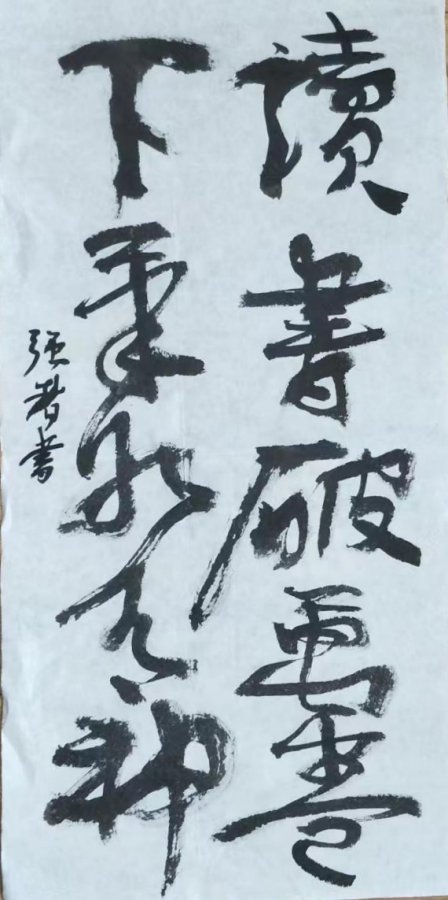 讀書破萬卷
下筆如有神
强者書